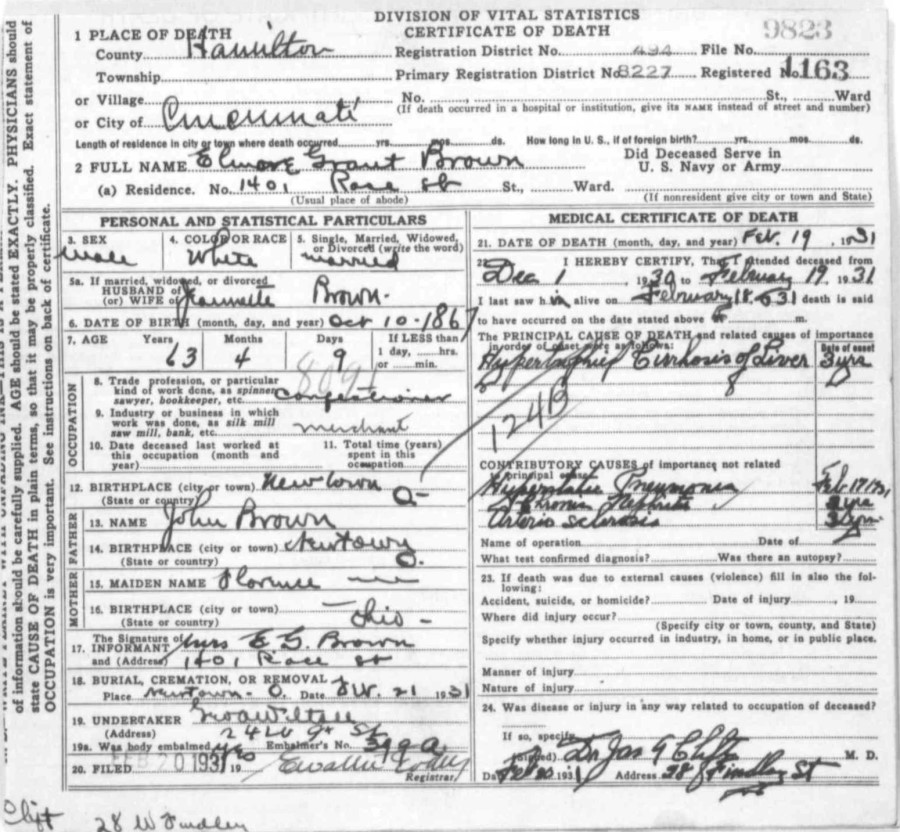 DIVISION OF VITAL STATISTICS
CERTIFICATE OF DEATH
9823
1 PLACE OF DEATH
County Hamilton
Registration District No. 494 File No.
Township
Primary Registration District No. 8227 Registered No. 1163
or Village
No. St., Ward
(If death occurred in a hospital or institution, give its NAME instead of street and number)
or City of Cincinnati
Length of residence in city or town where death occurred yrs. mos. ds. How long in U. S., if of foreign birth? yrs. mos. ds.
2 FULL NAME Elmore Grant Brown
Did Deceased Serve in
U. S. Navy or Army
(a) Residence. No. 1401 Race St St., Ward.
(Usual place of abode) (If nonresident give city or town and State)
PERSONAL AND STATISTICAL PARTICULARS
3. SEX 4. COLOR OR RACE 5. Single, Married, Widowed,
or Divorced (write the word)
male White married
5a. If married, widowed, or divorced
HUSBAND of
(or) WIFE of Jeannette Brown.
6. DATE OF BIRTH (month, day, and year) Oct 10-1867
7. AGE Years Months Days If LESS than
1 day, hrs.
or min.
63 4 9
OCCUPATION
8. Trade profession, or particular
kind of work done, as spinner
sawyer, bookkeeper, etc. confectioner
9. Industry or business in which
work was done, as silk mill
saw mill, bank, etc. merchant
10. Date deceased last worked at
this occupation (month and
year)
11. Total time (years)
spent in this
occupation
12. BIRTHPLACE (city or town) Newtown
(State or country) O-
FATHER
13. NAME John Brown
14. BIRTHPLACE (city or town) Newtown
(State or country) O.
MOTHER
15. MAIDEN NAME Florence
16. BIRTHPLACE (city or town)
(State or country) Ohio -
17. The Signature of
INFORMANT Mrs E G. Brown
and (Address) 1401 Race St
18. BURIAL, CREMATION, OR REMOVAL
Place Newtown - O. Date Feb. 21 1931
19. UNDERTAKER
(Address) St
19a. Was body embalmed yes Embalmer's No. 399a
20. FILED FEB 20 1931 19
Registrar
MEDICAL CERTIFICATE OF DEATH
21. DATE OF DEATH (month, day, and year) Feb. 19, 1931
22. I HEREBY CERTIFY, That I attended deceased from
Dec 1, 1930 to February 19, 1931
I last saw him alive on February 18 1931 death is said
to have occurred on the date stated above m.
The PRINCIPAL CAUSE OF DEATH and related causes of importance
in order of onset were as follows: Date of onset
Hypertrophic Cirrhosis of Liver 3 yrs
124B
CONTRIBUTORY CAUSES of importance not related
to principal cause:
Hypostatic Pneumonia Feb 17 1931
Chronic Nephritis yrs
Arterio sclerosis yrs
Name of operation Date of
What test confirmed diagnosis? Was there an autopsy?
23. If death was due to external causes (violence) fill in also the fol-
lowing:
Accident, suicide, or homicide? Date of injury , 19
Where did injury occur?
(Specify city or town, county, and State)
Specify whether injury occurred in industry, in home, or in public place.
Manner of injury
Nature of injury
24. Was disease or injury in any way related to occupation of deceased?
If so, specify
(Signed) Dr Jas G Clift M. D.
Date Feb 20 1931 Address 28 W Findlay St
of information should be carefully supplied. AGE should be stated EXACTLY. PHYSICIANS should
state CAUSE OF DEATH in plain terms, so that it may be properly classified. Exact statement of
OCCUPATION is very important. See instructions on back of certificate.
Clift 28 W Findley